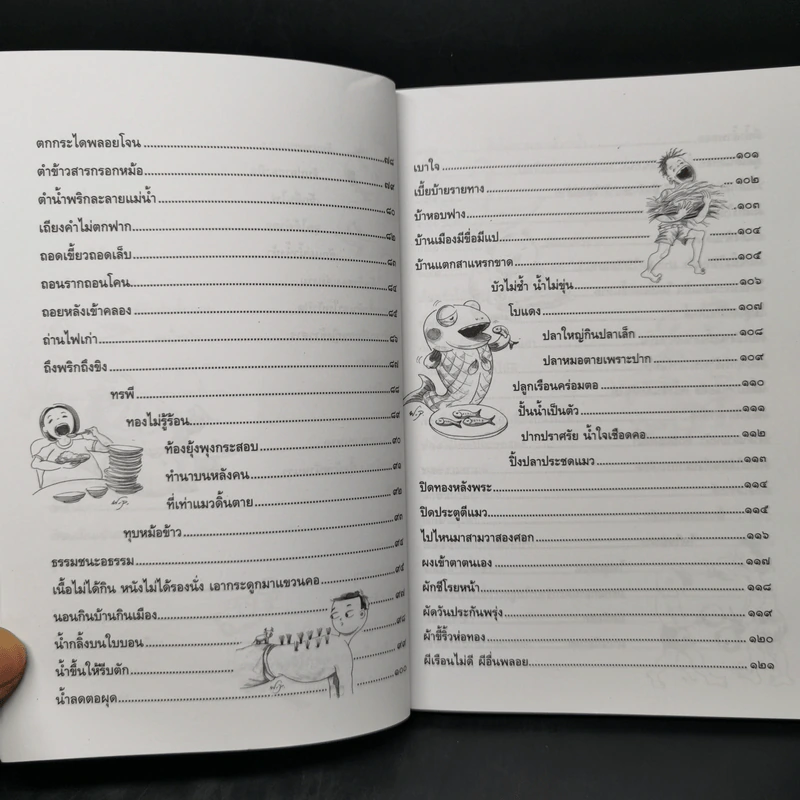 ตกกระไดพลอยโจน ๗๘
ตำข้าวสารกรอกหม้อ ๗๙
ตำน้ำพริกละลายแม่น้ำ ๘๐
เถียงคำไม่ตกฟาก ๘๒
ถอดเขี้ยวถอดเล็บ ๘๓
ถอนรากถอนโคน ๘๔
ถอยหลังเข้าคลอง ๘๕
ถ่านไฟเก่า ๘๖
ถึงพริกถึงขิง ๘๗
ทรพี ๘๘
ทองไม่รู้ร้อน ๘๙
ท้องยุ้งพุงกระสอบ ๙๐
ทำนาบนหลังคน ๙๑
ที่เท่าแมวดิ้นตาย ๙๒
ทุบหม้อข้าว ๙๓
ธรรมชนะอธรรม ๙๔
เนื้อไม่ได้กิน หนังไม่ได้รองนั่ง เอากระดูกมาแขวนคอ ๙๕
นอนกินบ้านกินเมือง ๙๗
น้ำกลิ้งบนใบบอน ๙๘
น้ำขึ้นให้รีบตัก ๙๙
น้ำลดตอผุด ๑๐๐
เบาใจ ๑๐๑
เบี้ยบ้ายรายทาง ๑๐๒
บ้าหอบฟาง ๑๐๓
บ้านเมืองมีขื่อมีแป ๑๐๔
บ้านแตกสาแหรกขาด ๑๐๕
บัวไม่ช้ำ น้ำไม่ขุ่น ๑๐๖
โบแดง ๑๐๗
ปลาใหญ่กินปลาเล็ก ๑๐๘
ปลาหมอตายเพราะปาก ๑๐๙
ปลูกเรือนคร่อมตอ ๑๑๐
ปั้นน้ำเป็นตัว ๑๑๑
ปากปราศรัย น้ำใจเชือดคอ ๑๑๒
ปิ้งปลาประชดแมว ๑๑๓
ปิดทองหลังพระ ๑๑๔
ปิดประตูตีแมว ๑๑๕
ไปไหนมาสามวาสองศอก ๑๑๖
ผงเข้าตาตนเอง ๑๑๗
ผักชีโรยหน้า ๑๑๘
ผัดวันประกันพรุ่ง ๑๑๙
ผ้าขี้ริ้วห่อทอง ๑๒๐
ผีเรือนไม่ดี ผีอื่นพลอย ๑๒๑